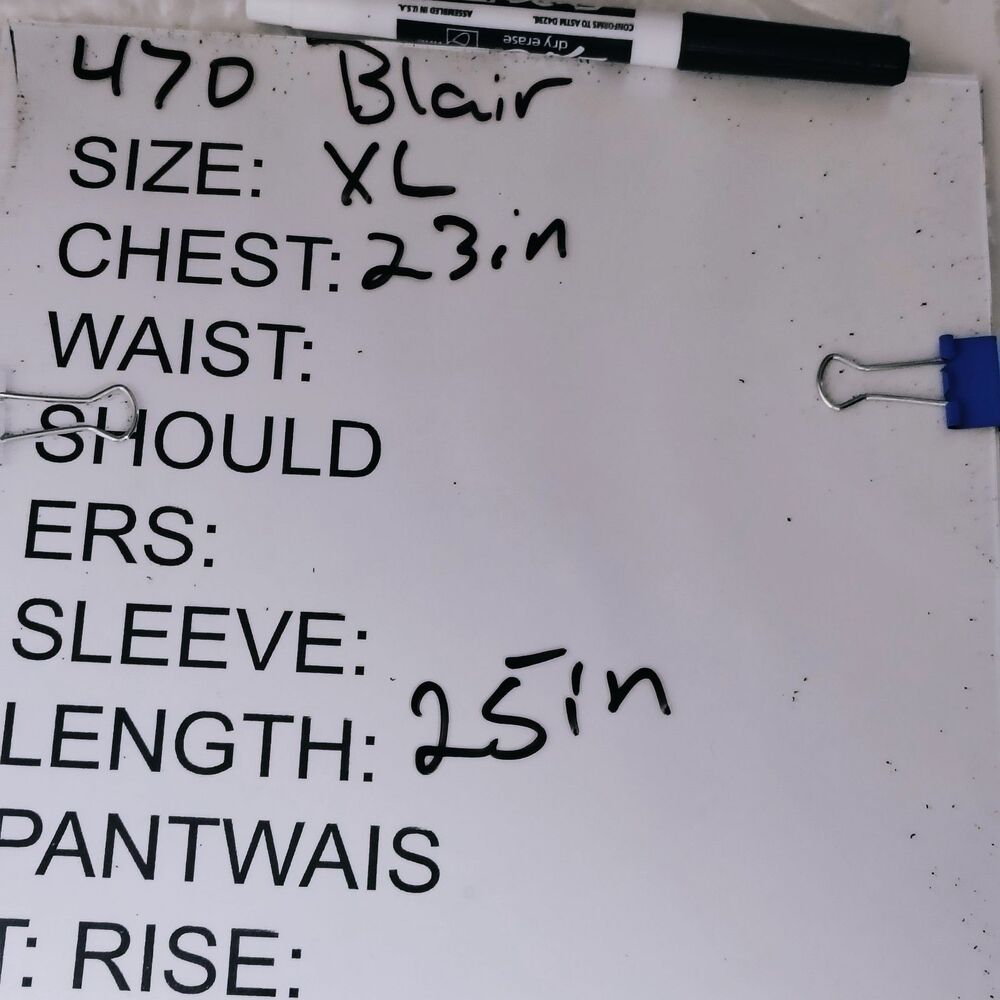 ASSEMBLED IN U.S.A.
CONFORMS TO ASTM D4236
dry erase
470 Blair
SIZE: XL
CHEST: 23in
WAIST:
SHOULD
ERS:
SLEEVE:
LENGTH: 25in
PANTWAIS
T: RISE: